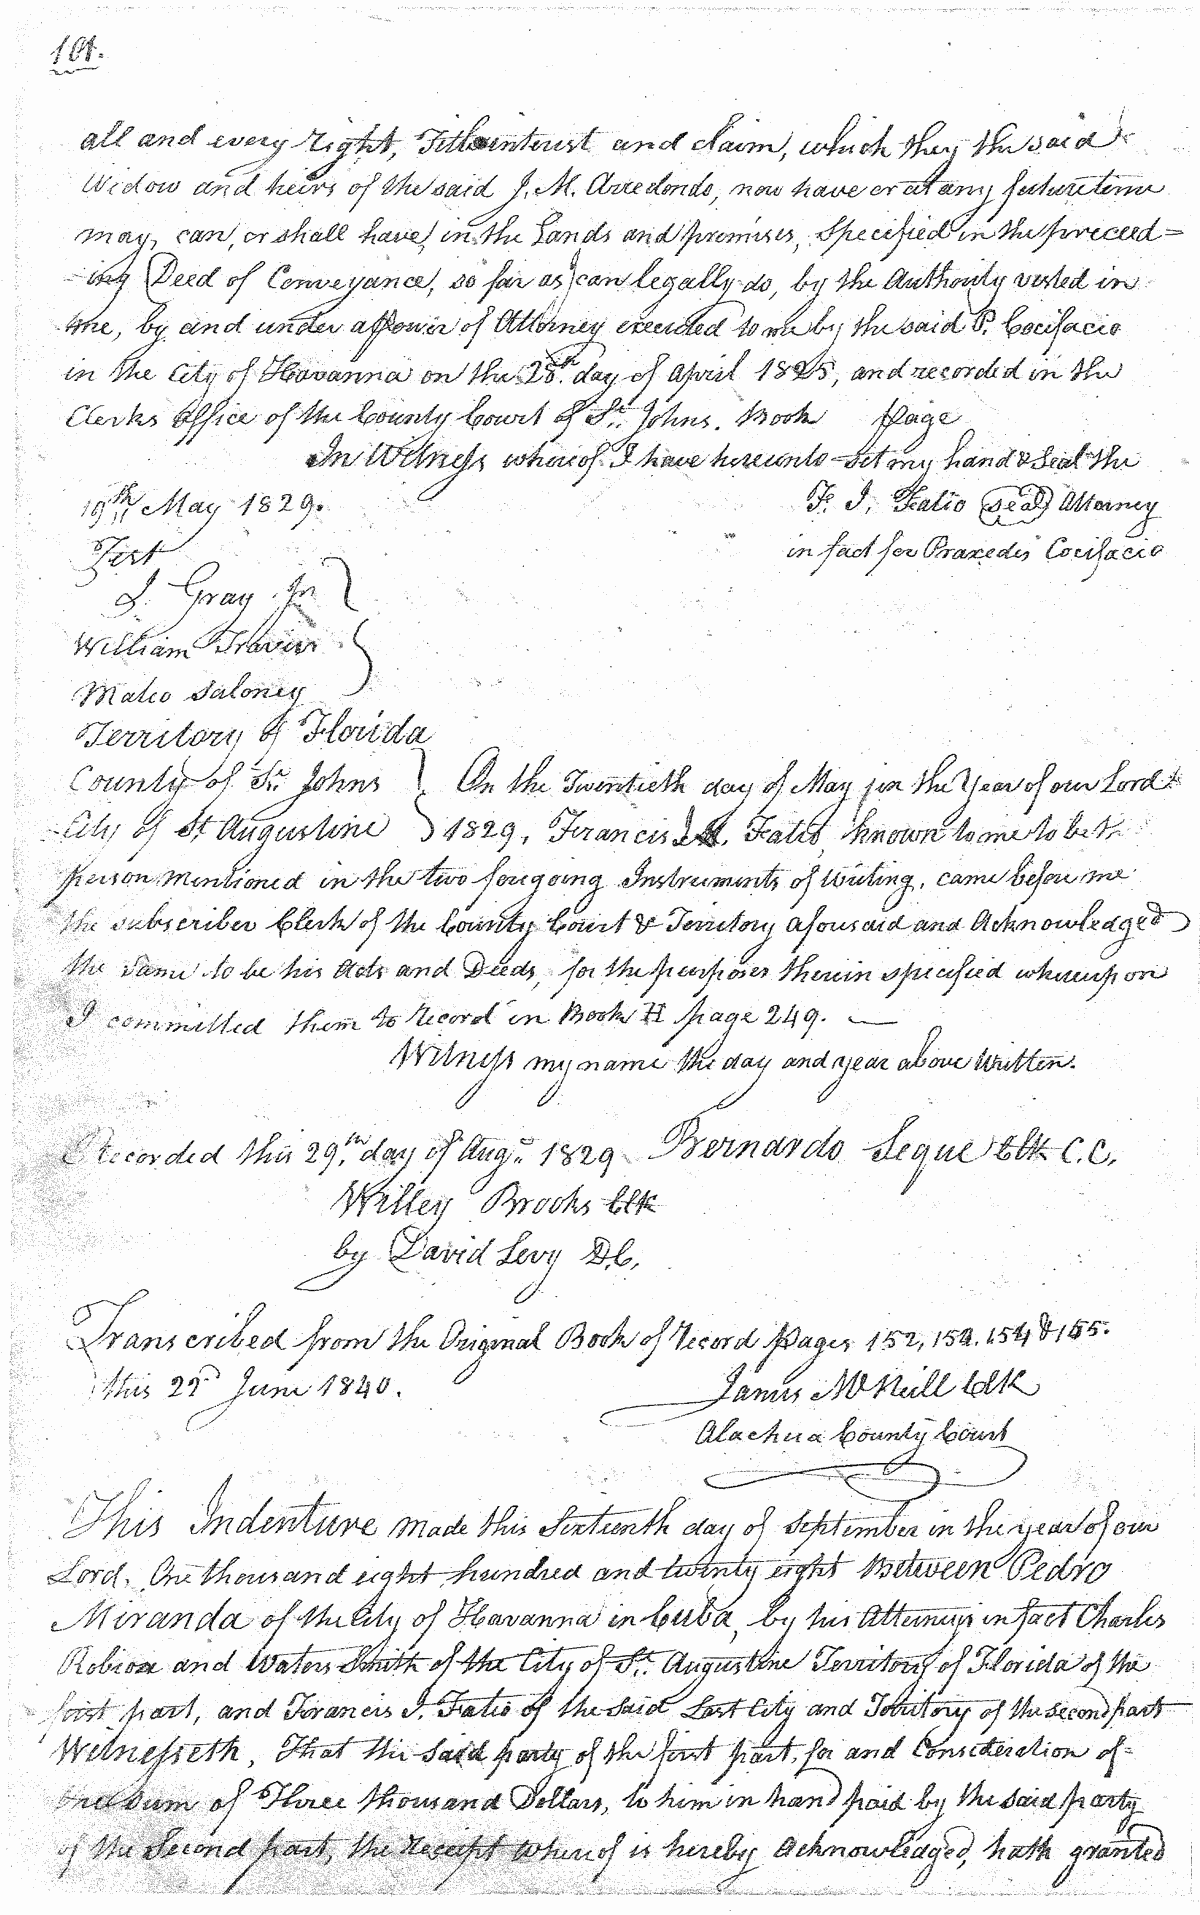 101.
all and every right, Title interest and claim, which they the said
Widow and heirs of the said J. M. Arredondo, now have or at any future time
may, can, or shall have, in the Lands and premises, Specified in the preceed=
-ing Deed of Conveyance, so far as I can legally do, by the Authority vested in
me, by and under a Power of Attorney executed to me by the said P. Cocifacio
in the City of Havanna on the 28th. day of April 1825, and recorded in the
Clerks Office of the County Court of St. Johns. Book Page
In Witness whereof I have hereunto set my hand & Seal the
19th May 1829.
F. J. Fatio (seal) Attorney
in fact for Praxedis Cocifacio
Test
J. Gray Jr
William Travers
Mateo Saloney
Territory of Florida
County of St. Johns } On the Twentieth day of May in the Year of our Lord
City of St Augustine } 1829, Francis J. Fatio, known to me to be the
person mentioned in the two foregoing Instruments of Writing, came before me
the subscriber Clerk of the County Court & Territory aforesaid and Acknowledged
the same to be his Acts and Deeds, for the purposes therein specified whereupon
I committed them to record in Book H page 249.
Witness my name the day and year above Written.
Recorded this 29th. day of Augt. 1829 Bernardo Segue Clk C.C.
Willey Brooks Clk
by David Levy D.C.
Transcribed from the Original Book of record Pages 152, 153, 154 & 155.
this 22d June 1840.
James McNeill Clk
Alachua County Court
This Indenture made this Sixteenth day of September in the year of our
Lord, One thousand eight hundred and twenty eight Between Pedro
Miranda of the City of Havanna in Cuba, by his Attorneys in fact Charles
Robion and Waters Smith of the City of St. Augustine Territory of Florida of the
first part, and Francis J. Fatio of the said Last City and Territory of the second part
Witnesseth, That the said party of the first part, for and Consideration of
the sum of Three thousand Dollars, to him in hand paid by the said party
of the Second part, the Receipt whereof is hereby Acknowledged, hath granted